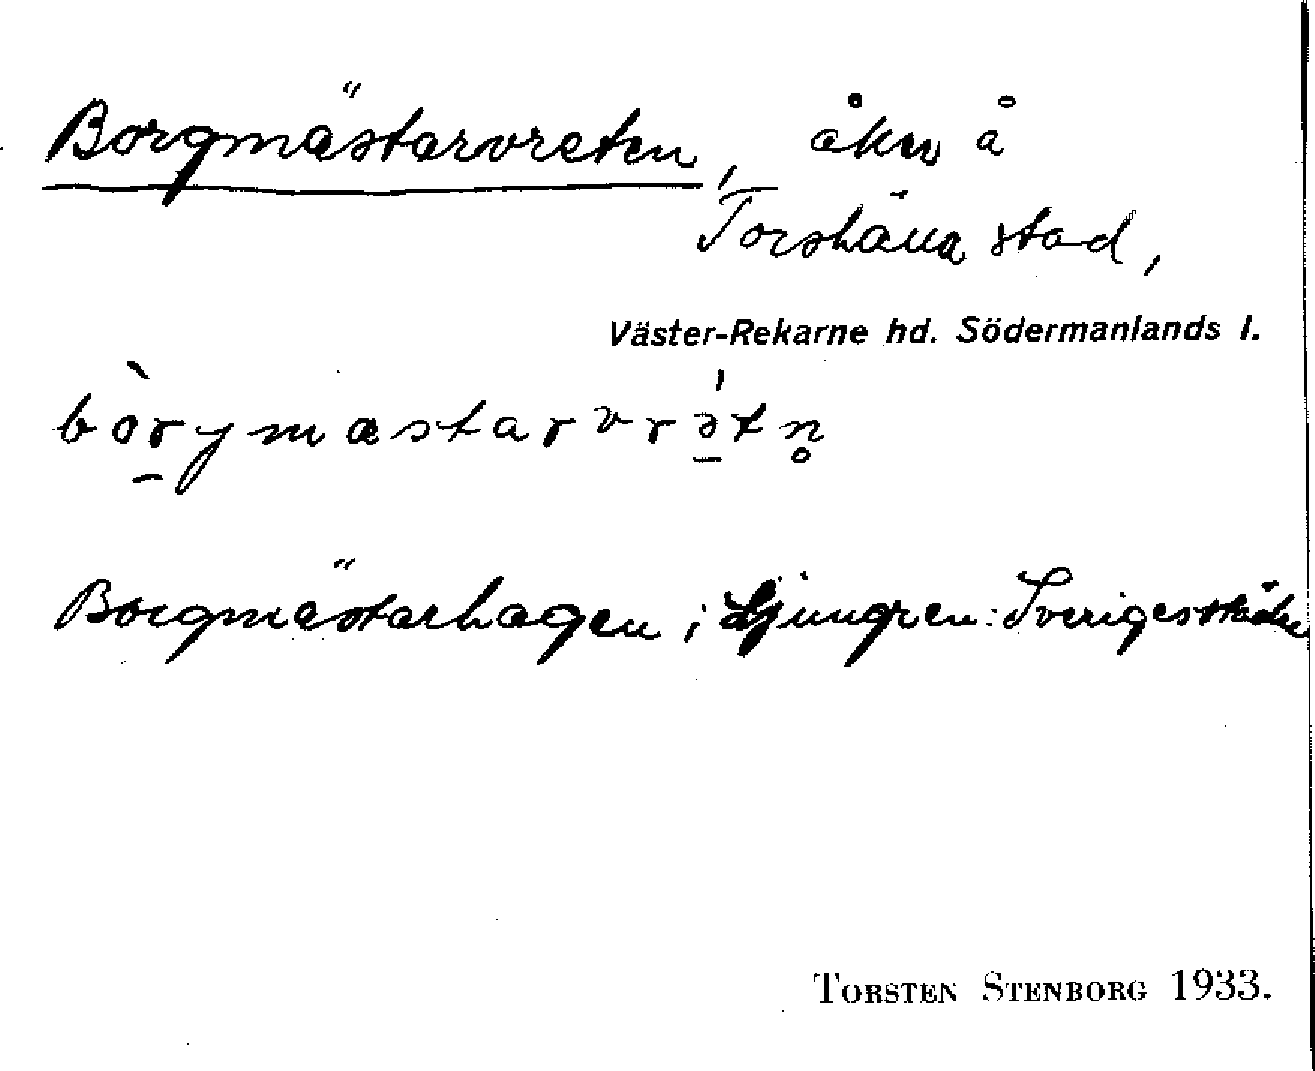 Borgmästarvreten, åker å
Torshälla stad,
Väster-Rekarne hd. Södermanlands l.
bòrymæstarvrətn̥
Borgmästarhagen i Ljungren: Sverigesstäder
TORSTEN STENBORG 1933.